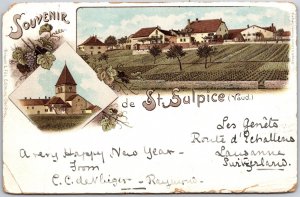 SOUVENIR
de St. Sulpice (Vaud)
Les Genêts
Route d'Echallens
Lausanne
Switzerland.
A very Happy New Year
From
C. C.